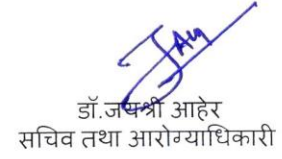 डॉ.जयश्री आहेर
सचिव तथा आरोग्याधिकारी